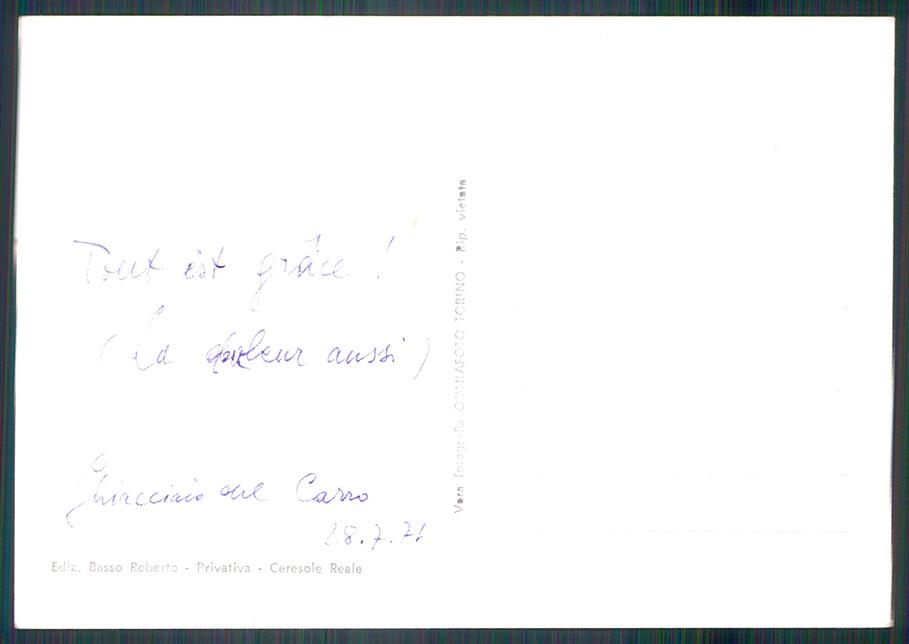 Tout est grâce !
(La douleur aussi)
Ghiacciaio del Carro
28.7.71
Ediz. Basso Roberto - Privativa - Ceresole Reale
Vera fotografia OMNIAFOTO TORINO - Rip. vietata